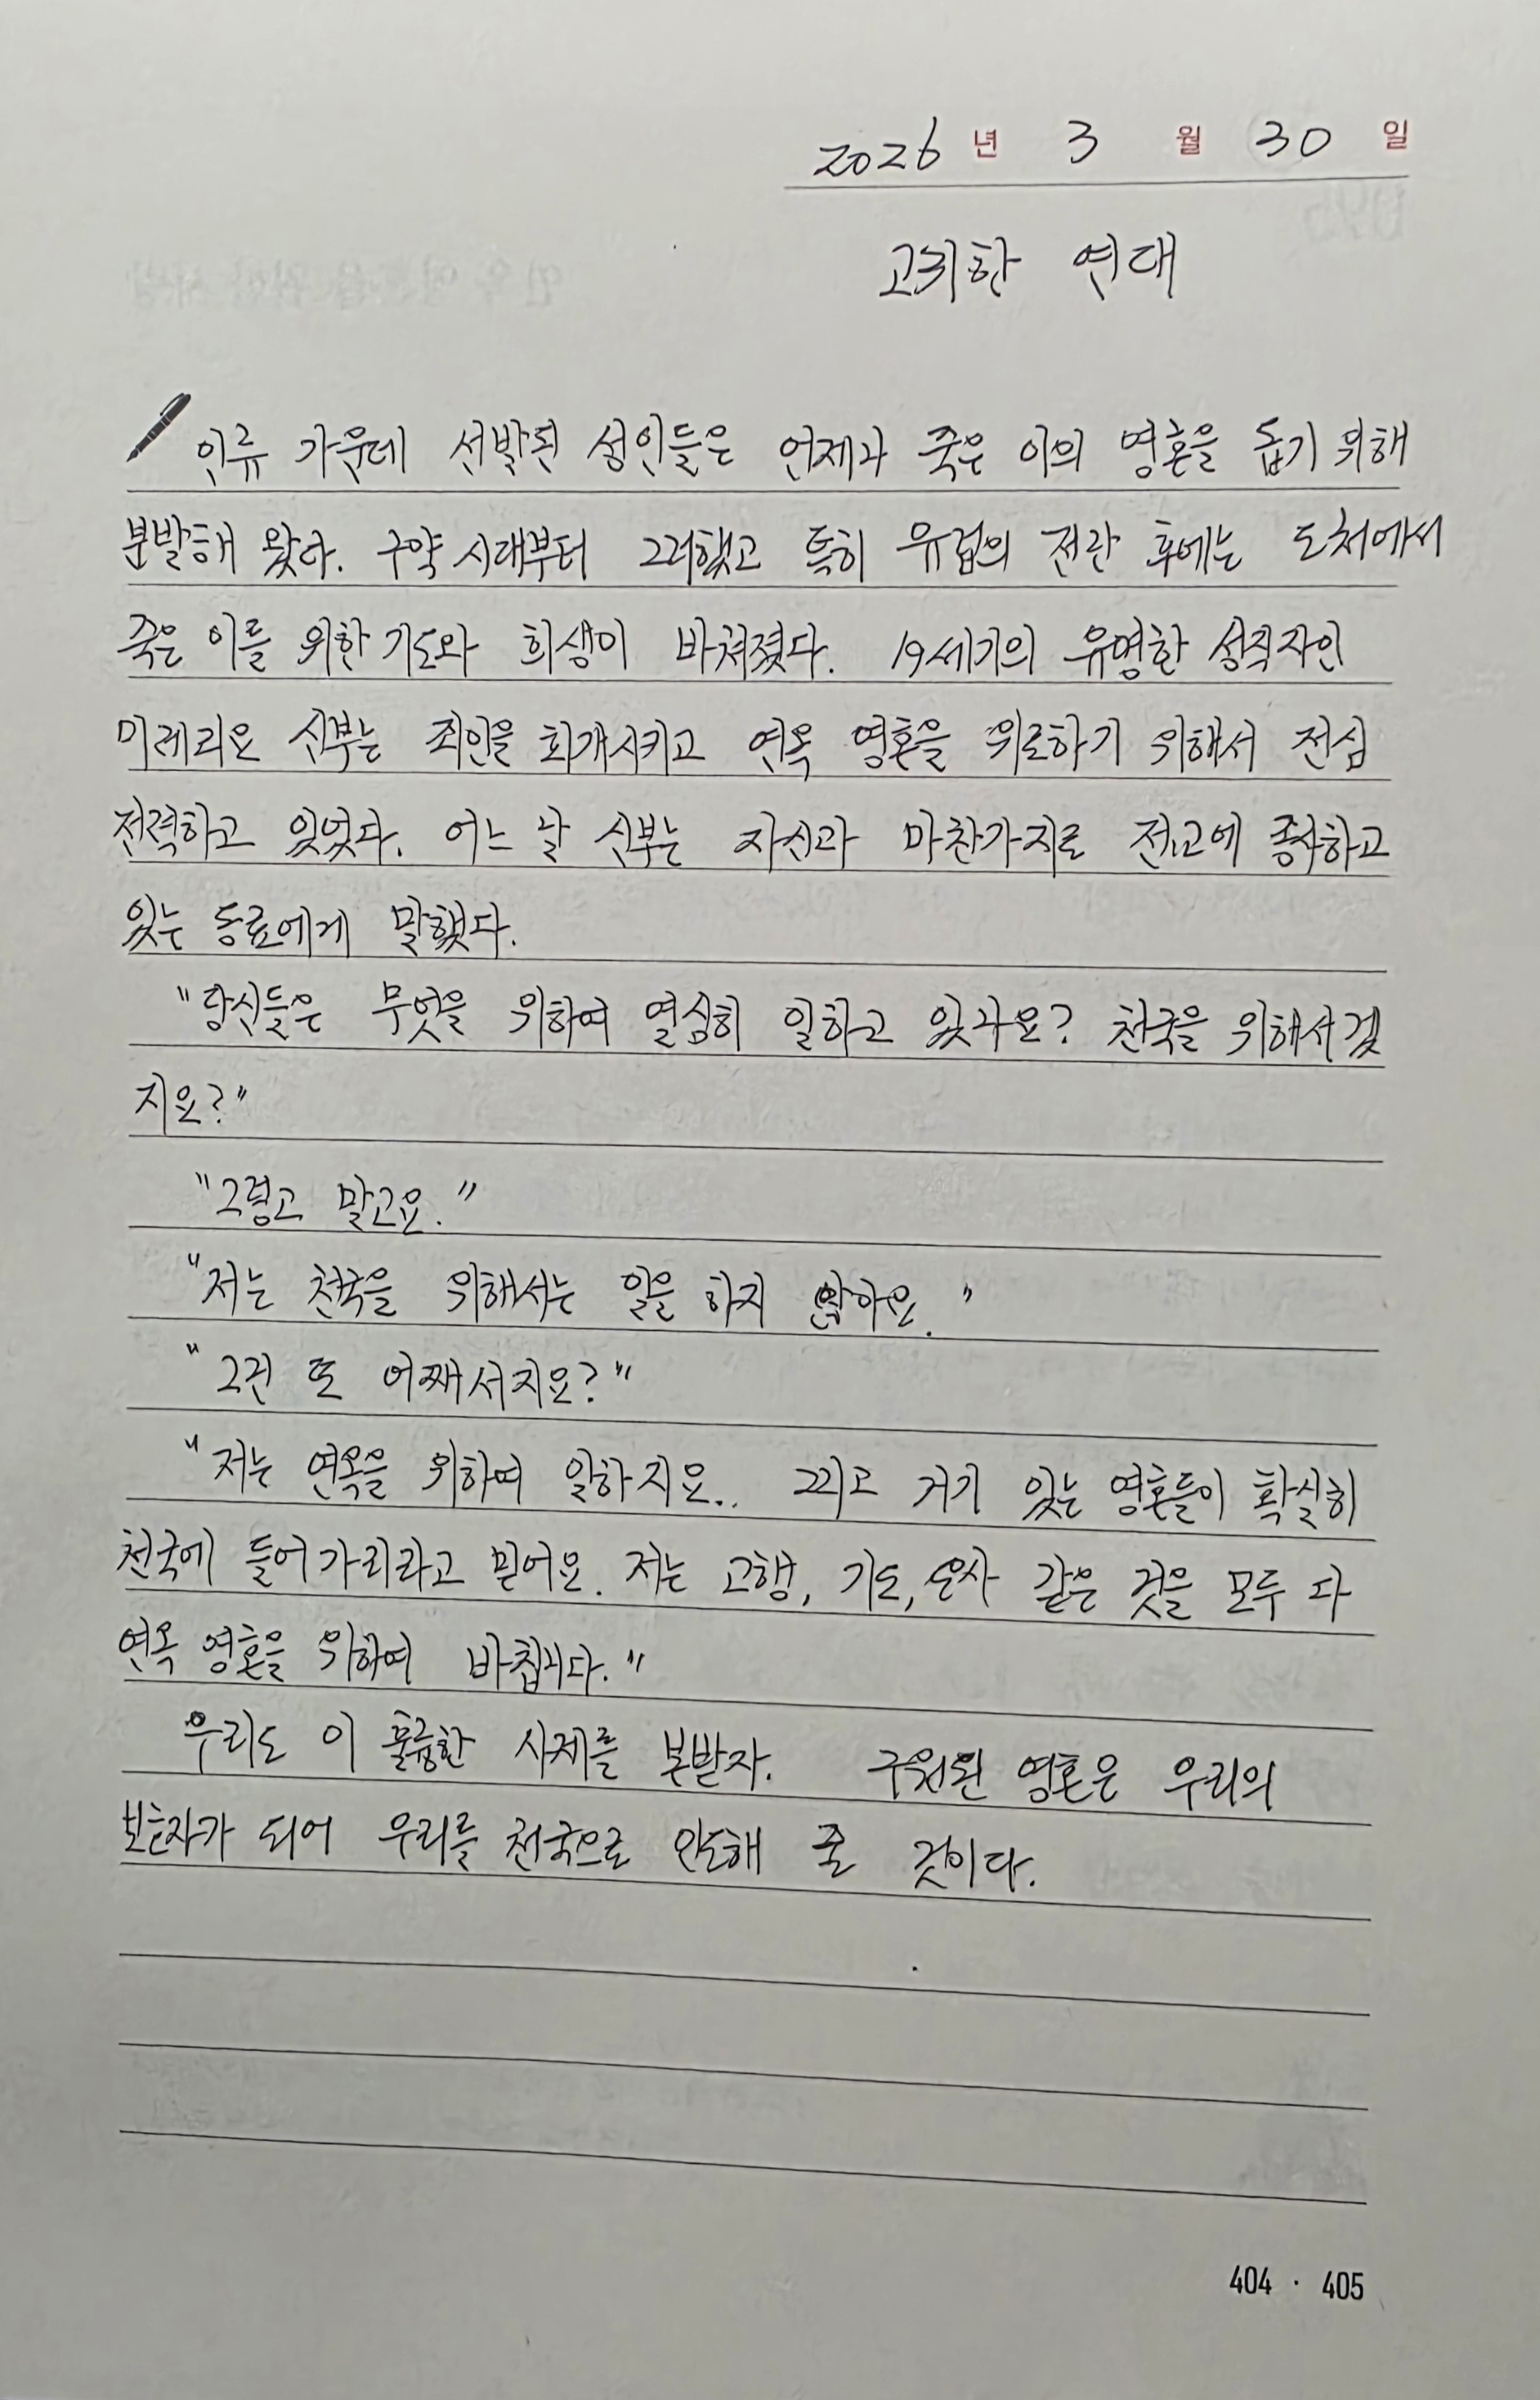 2026 년 3 월 30 일
고귀한 연대
인류 가운데 선발된 성인들은 언제나 죽은 이의 영혼을 돕기 위해
분발해 왔다. 구약 시대부터 그러했고 특히 유럽의 전란 후에는 도처에서
죽은 이를 위한 기도와 희생이 바쳐졌다. 19세기의 유명한 성직자인
미레리요 신부는 죄인을 회개시키고 연옥 영혼을 위로하기 위해서 전심
전력하고 있었다. 어느 날 신부는 자신과 마찬가지로 전교에 종사하고
있는 동료에게 말했다.
"당신들은 무엇을 위하여 열심히 일하고 있나요? 천국을 위해서겠
지요?"
"그렇고 말고요."
"저는 천국을 위해서는 일을 하지 않아요."
"그건 또 어째서지요?"
"저는 연옥을 위하여 일하지요.. 그리고 거기 있는 영혼들이 확실히
천국에 들어가리라고 믿어요. 저는 고행, 기도, 은사 같은 것을 모두 다
연옥 영혼을 위하여 바칩니다."
우리도 이 훌륭한 사제를 본받자. 구원된 영혼은 우리의
보호자가 되어 우리를 천국으로 인도해 줄 것이다.
404 · 405